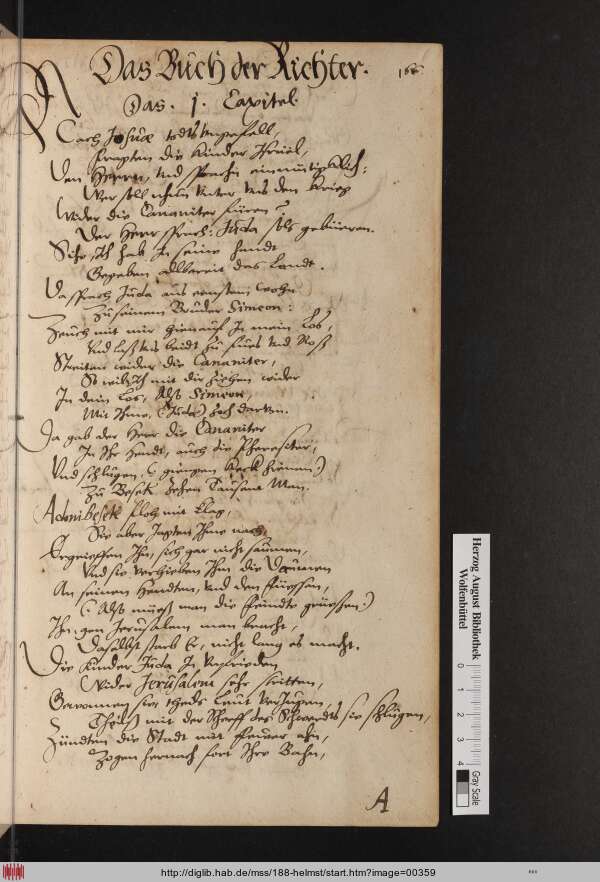 Das Buch der Richter.
166
Das . j . Capitel.
Nach Josuæ todts unsefell,
fragten die Kinder Israel,
Den Herren, und sprachen
Wer soll uns den Krieg
Wider die Cananiter füren?
Der Herr sprach: Juda sols gebüeren.
Sihe, Ich hab in seine Handt
Gegeben alberait das Landt.
Da sprach Juda aus
Zu seinem Bruder Simeon:
Zeuch mit mir hienauf In mein Los,
Und laß uns beidt zu fues und Ros
Streiten wider die Cananiter,
So wil Ich mit dir ziehen wider
In dein Los, Alß Simeon,
Mit Ihme, (Juda) zoch darvon.
Da gab der Herr die Cananiter
In Ihr Hendt, auch die Pheresiter,
Und schlugen, (giengen keck hienan)
Zu Besek zehen Tausent Man.
Adonibesek floh mit klag,
Sie aber Jagten Ihme nach,
Ergrieffen Ihn, sich gar nicht saumen,
Und sie verhieben Ihm die Daumen
An seinen Hendten, und den füessen,
(Alß mueß man die feindte grüessen)
Ihn gen Jerusalem man bracht,
Daselbst starb Er, nicht lang es macht.
Die Kinder Juda
Wider Jerusalem sehr stritten,
Gewonnen sie,
mit der Scherff des Schwerdts sie schlugen,
Zündten die Stadt mit feuer ahn,
Zogen hernach fort Ihre Bahn,
A
Herzog August Bibliothek
Wolfenbüttel
0 1 2 3 4
Gray Scale
http://diglib.hab.de/mss/188-helmst/start.htm?image=00359